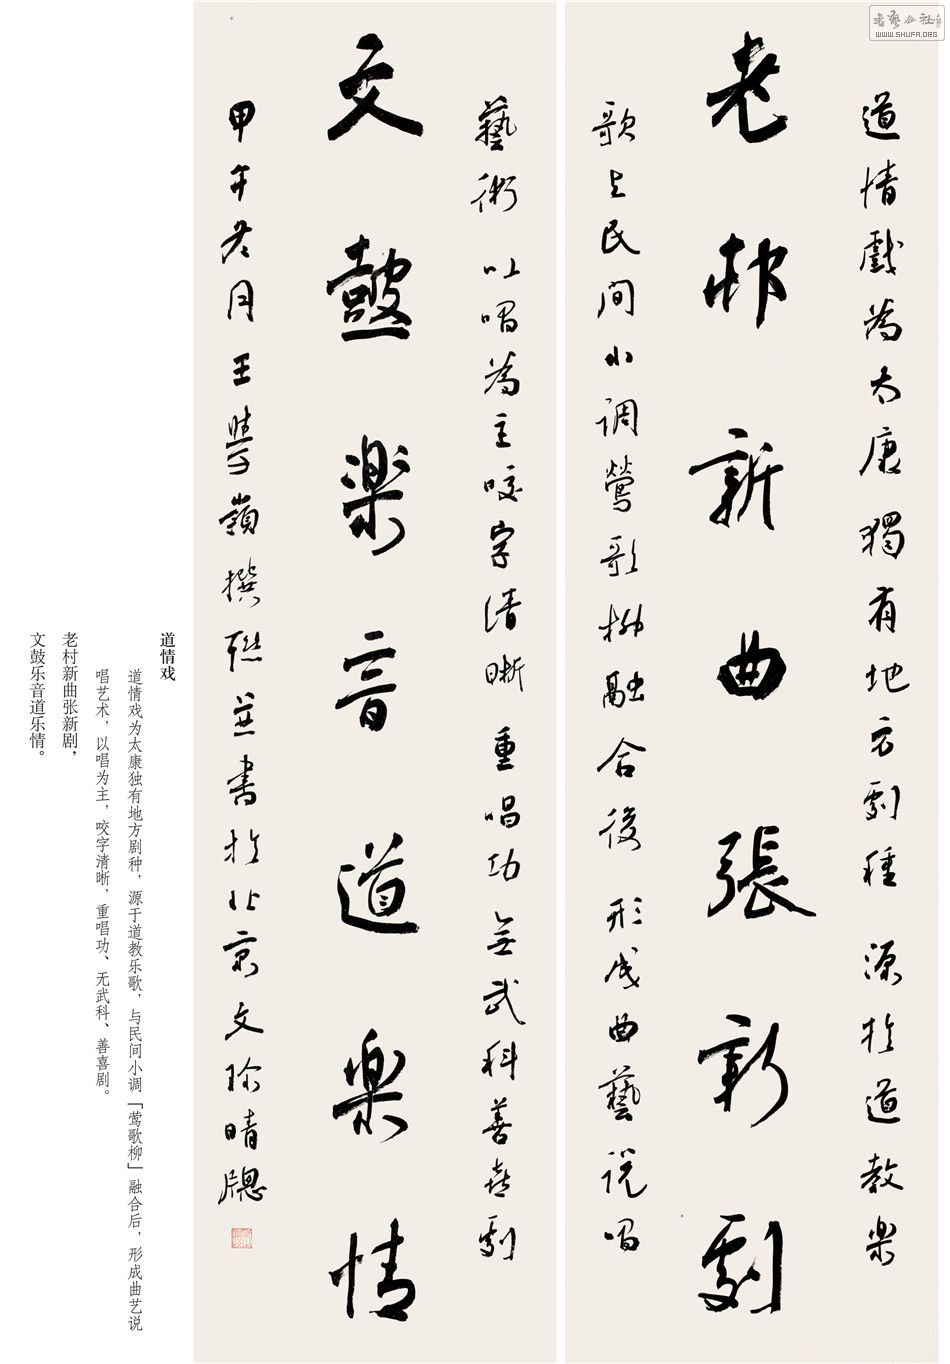 書藝公社
WWW.SHUFA.ORG
道情戲為太康獨有地方劇種源於道教樂
老邨新曲張新劇
歌与民間小调鶯歌柳融合後形成曲藝说唱
藝術以唱為主咬字清晰重唱功無武科善喜劇
文鼓樂音道樂情
甲午冬月王學嶺撰联并書於北京文珍晴牕
道情戏
道情戏为太康独有地方剧种，源于道教乐歌，与民间小调「莺歌柳」融合后，形成曲艺说
唱艺术，以唱为主，咬字清晰，重唱功、无武科、善喜剧。
老村新曲张新剧，
文鼓乐音道乐情。